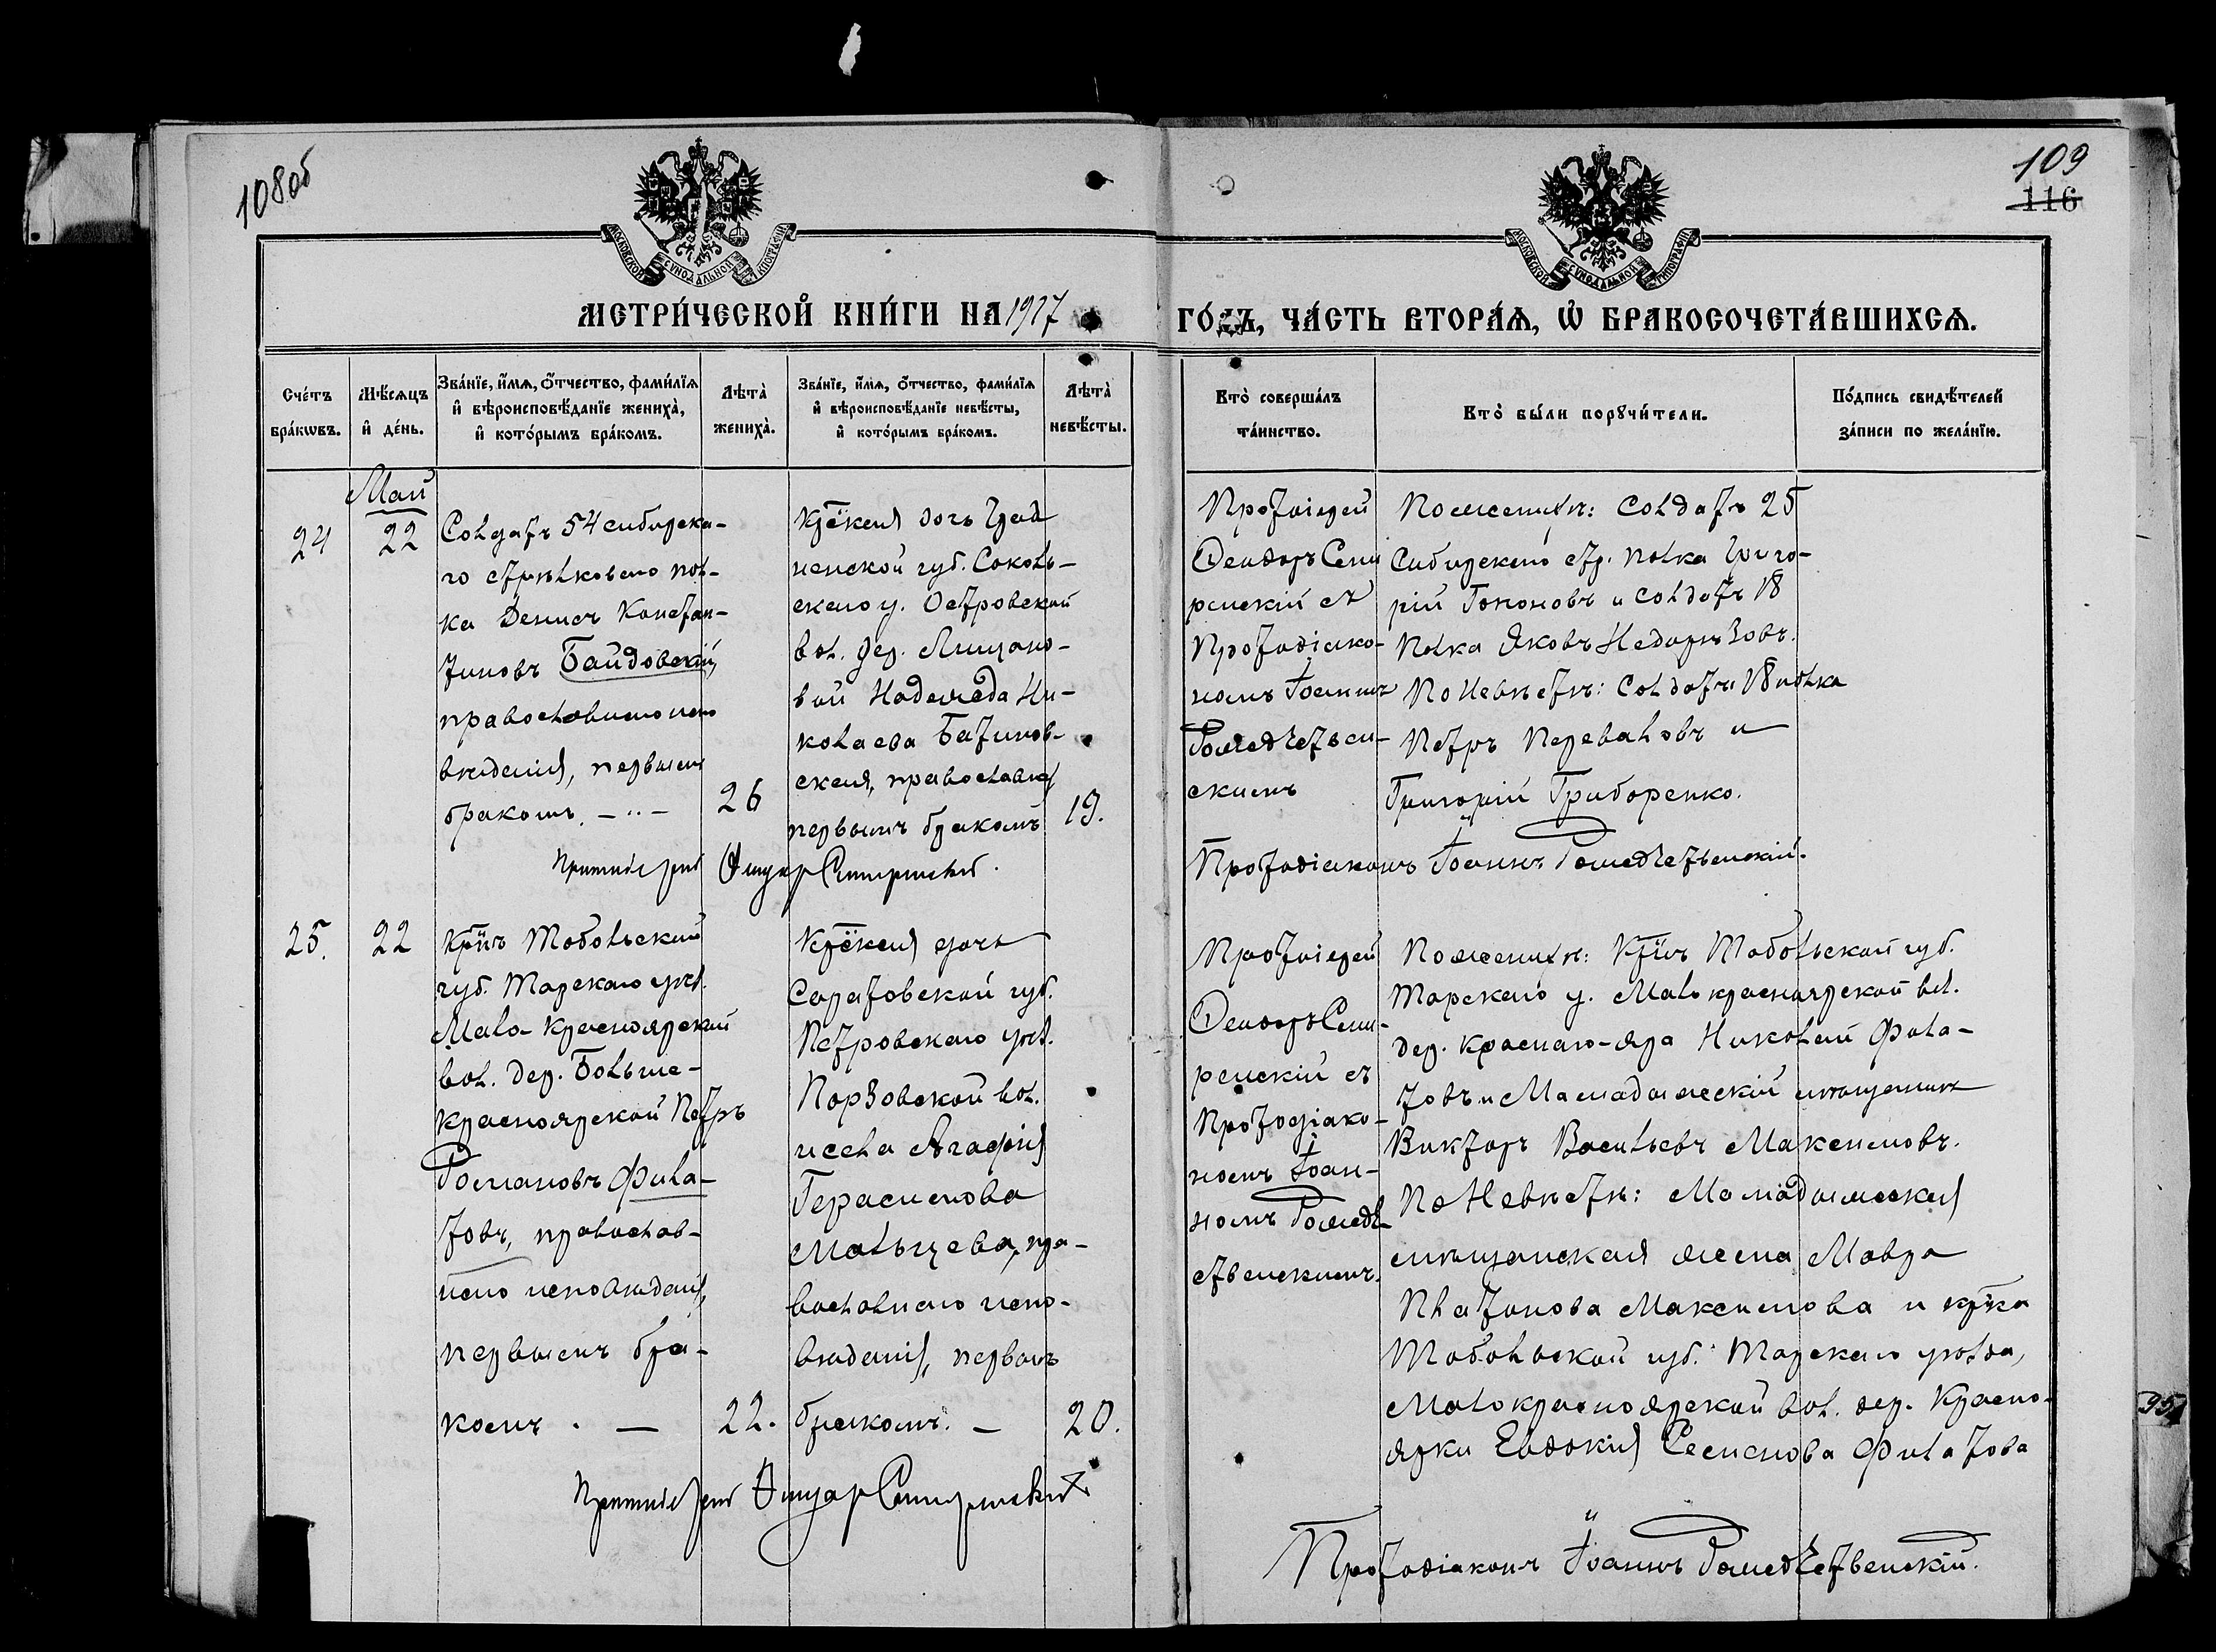 108об
109
116
МОСКОВСКОЙ СУНОДАЛЬНОЙ ТИПОГРАФІИ
МОСКОВСКОЙ СУНОДАЛЬНОЙ ТИПОГРАФІИ
МЕТРИ́ЧЕСКОЙ КНИ́ГИ НА 1917
ГО́ДЪ, ЧА́СТЬ ВТОРА́Ѧ, Ѡ҆ БРАКОСОЧЕТА́ВШИХСѦ.
Сче́тъ
бра́кѡвъ.
Мѣ́сѧцъ
и҆ де́нь.
Зва́нїе, и҆́мѧ, ѻ҆́тчество, фами́лїѧ
и҆ вѣроисповѣ́данїе жениха̀,
и҆ кото́рымъ бра́комъ.
Лѣта̀
жениха̀.
Зва́нїе, и҆́мѧ, ѻ҆́тчество, фами́лїѧ
и҆ вѣроисповѣ́данїе невѣ́сты,
и҆ кото́рымъ бра́комъ.
Лѣта̀
невѣ́сты.
Кто̀ соверша́лъ
та́инство.
Кто̀ бы́ли порꙋчи́тели.
По́дпись свидѣ́телей
за́писи по жела́нїю.
24
Май
22
Солдатъ 54 сибирска-
го стрѣлковаго пол-
ка Денисъ Констан-
тиновъ Байдовскій,
православнаго испо
вѣданія, первымъ
бракомъ. - " -
26
Кр̃ская дочь Грод
ненской губ. Соколь-
скаго у. Островской
вол. дер. Лищано-
вой Надежда Ни-
колаева Батинов-
ская, православная
первымъ бракомъ
19.
Протоіерей Ѳеодоръ Симиренскій.
Протоіерей
Ѳеодоръ Сими
ренскій съ
Протодіако-
номъ Іоанномъ
Рождествен-
скимъ
По женихѣ: Солдатъ 25
Сибирскаго стр. полка Григо-
рій Гононовъ и солдатъ 18
полка Яковъ Недорѣзовъ.
По невѣстѣ: Солдаты 18 полка
Петръ Переваловъ и
Григорій Гриборенко.
Протодіаконъ Іоаннъ Рождественскій.
25.
22
Кр̃нъ Тобольской
губ. Тарскаго уѣз.
Мало-Красноярской
вол. дер. Больше-
красноярской Петръ
Романовъ Фила-
товъ, православ-
наго исповѣданія,
первымъ бра-
комъ. —
22.
Кр̃ская дочь
Саратовской губ.
Петровскаго уѣз.
Порзовской вол.
и села Агафія
Герасимова
Мальцева, пра-
вославнаго испо-
вѣданія, первымъ
бракомъ. —
20.
Протоіерей Ѳеодоръ Симиренскій
Протоіерей
Ѳеодоръ Сими-
ренскій съ
Протодіако-
номъ Іоан-
номъ Рожде-
ственскимъ.
По женихѣ: Кр̃нъ Тобольской губ.
Тарскаго у. Малокрасноярской вол.
дер. Краснаго-Яра Николай Фила-
товъ и Мамадышскій мѣщанинъ
Викторъ Васильевъ Максимовъ.
По невѣстѣ: Мамадышская
мѣщанская жена Мавра
Платонова Максимова и кр̃ка
Тобольской губ. Тарскаго уѣзда,
Малокрасноярской вол. дер. Красно-
ярки Евдокія Семенова Филатова
Протодіаконъ Іоаннъ Рождественскій.
95